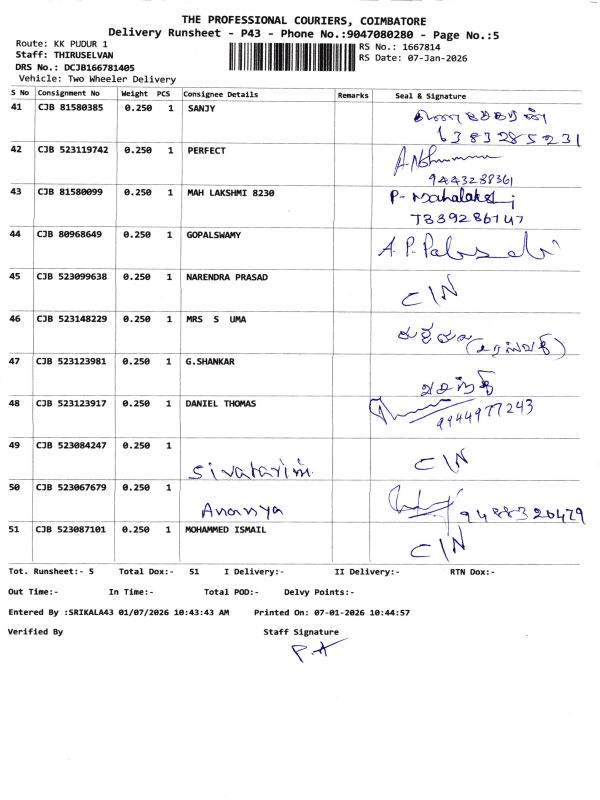 THE PROFESSIONAL COURIERS, COIMBATORE
Delivery Runsheet - P43 - Phone No.:9047080280 - Page No.:5
Route: KK PUDUR 1
Staff: THIRUSELVAN
DRS No.: DCJB166781405
Vehicle: Two Wheeler Delivery
RS No.: 1667814
RS Date: 07-Jan-2026
S No Consignment No Weight PCS Consignee Details Remarks Seal & Signature
41 CJB 81580385 0.250 1 SANJY
6383285231
42 CJB 523119742 0.250 1 PERFECT
9443288361
43 CJB 81580099 0.250 1 MAH LAKSHMI 8230 P-Mahalakshmi
7339286747
44 CJB 80968649 0.250 1 GOPALSWAMY A.P.
45 CJB 523099638 0.250 1 NARENDRA PRASAD C/N
46 CJB 523148229 0.250 1 MRS S UMA
47 CJB 523123981 0.250 1 G.SHANKAR
48 CJB 523123917 0.250 1 DANIEL THOMAS 9944977243
49 CJB 523084247 0.250 1 C/N
50 CJB 523067679 0.250 1 Ananya 9488320479
51 CJB 523087101 0.250 1 MOHAMMED ISMAIL C/N
Tot. Runsheet:- 5 Total Dox:- 51 I Delivery:- II Delivery:- RTN Dox:-
Out Time:- In Time:- Total POD:- Delvy Points:-
Entered By :SRIKALA43 01/07/2026 10:43:43 AM Printed On: 07-01-2026 10:44:57
Verified By Staff Signature
P.A